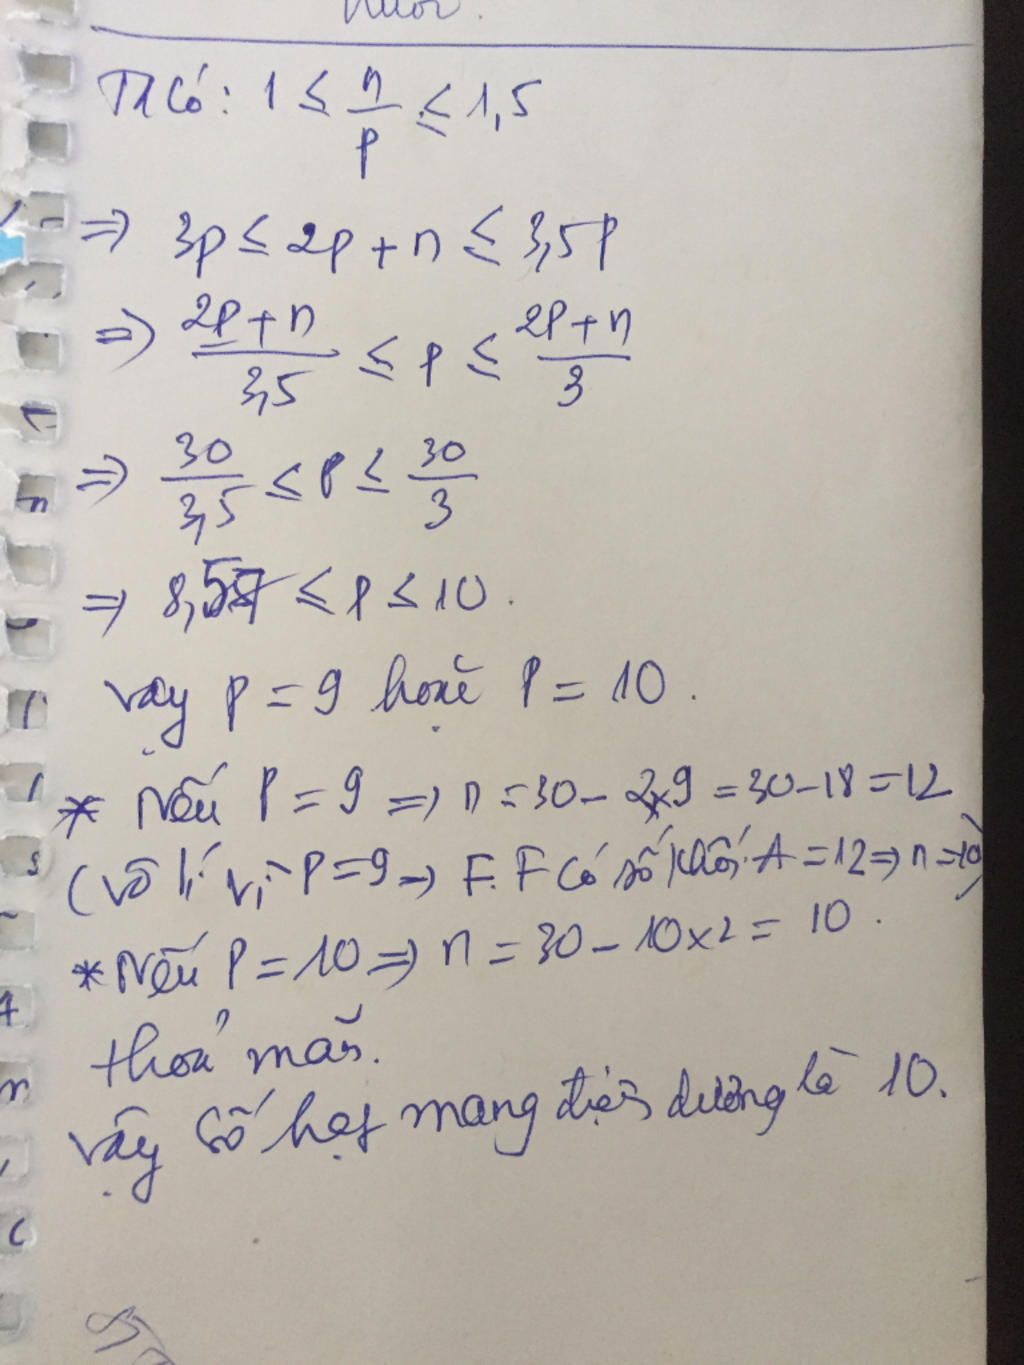 Ta có: 1 ≤ n/p ≤ 1,5
⇒ 3p ≤ 2p + n ≤ 3,5p
⇒ (2p + n)/3,5 ≤ p ≤ (2p + n)/3
⇒ 30/3,5 ≤ p ≤ 30/3
⇒ 8,57 ≤ p ≤ 10.
Vậy p = 9 hoặc p = 10.
* Nếu p = 9 ⇒ n = 30 - 2x9 = 30 - 18 = 12
(vô lí vì p = 9 ⇒ F. F có số khối A = 12 ⇒ n = 10)
* Nếu p = 10 ⇒ n = 30 - 10x2 = 10.
thoả mãn.
Vậy số hạt mang điện dương là 10.